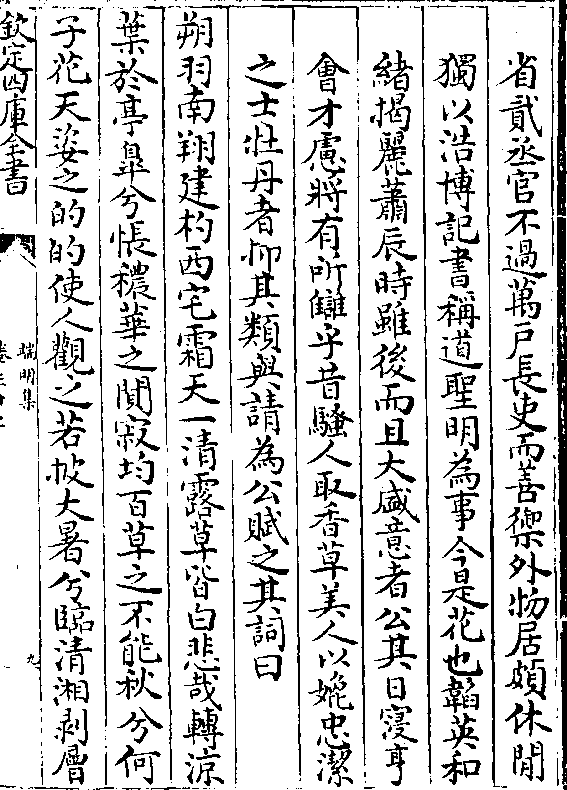 省貳丞官不過萬戶長吏而善禦外物居頗休閒
獨以浩博記書稱道聖明為事今是花也韜英和
緒揭麗蕭辰時雖後而且大盛意者公其日寖亨
會才慮蔣有所讎乎昔騷人取香草美人以媲忠潔
之士牡丹者抑其類與請為公賦之其詞曰
朔羽南翔建杓西宅霜天一清露草皆白悲哉轉涼
葉於亭臯兮悵穠華之閴寂均百草之不能秋兮何
子花天姿之的的使人觀之若披大暑兮臨清湘剥層
欽定四庫全書
端明集
九